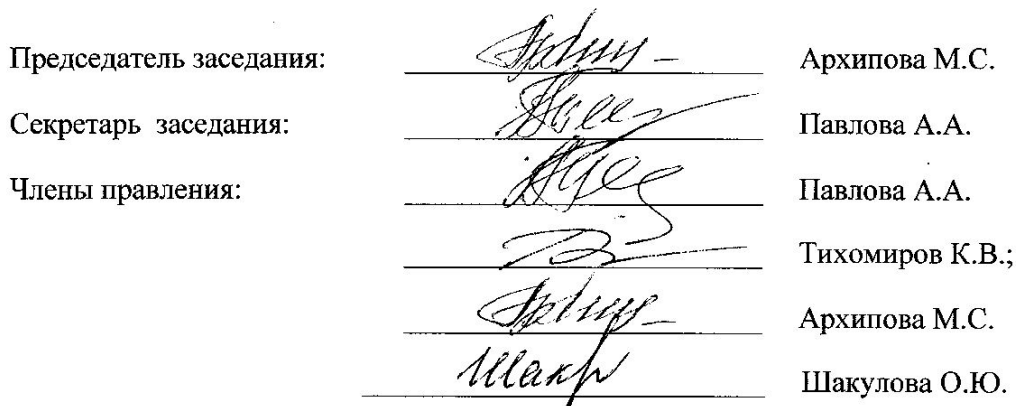 Председатель заседания: Архипова М.С.
Секретарь заседания: Павлова А.А.
Члены правления: Павлова А.А.
Тихомиров К.В.;
Архипова М.С.
Шакулова О.Ю.